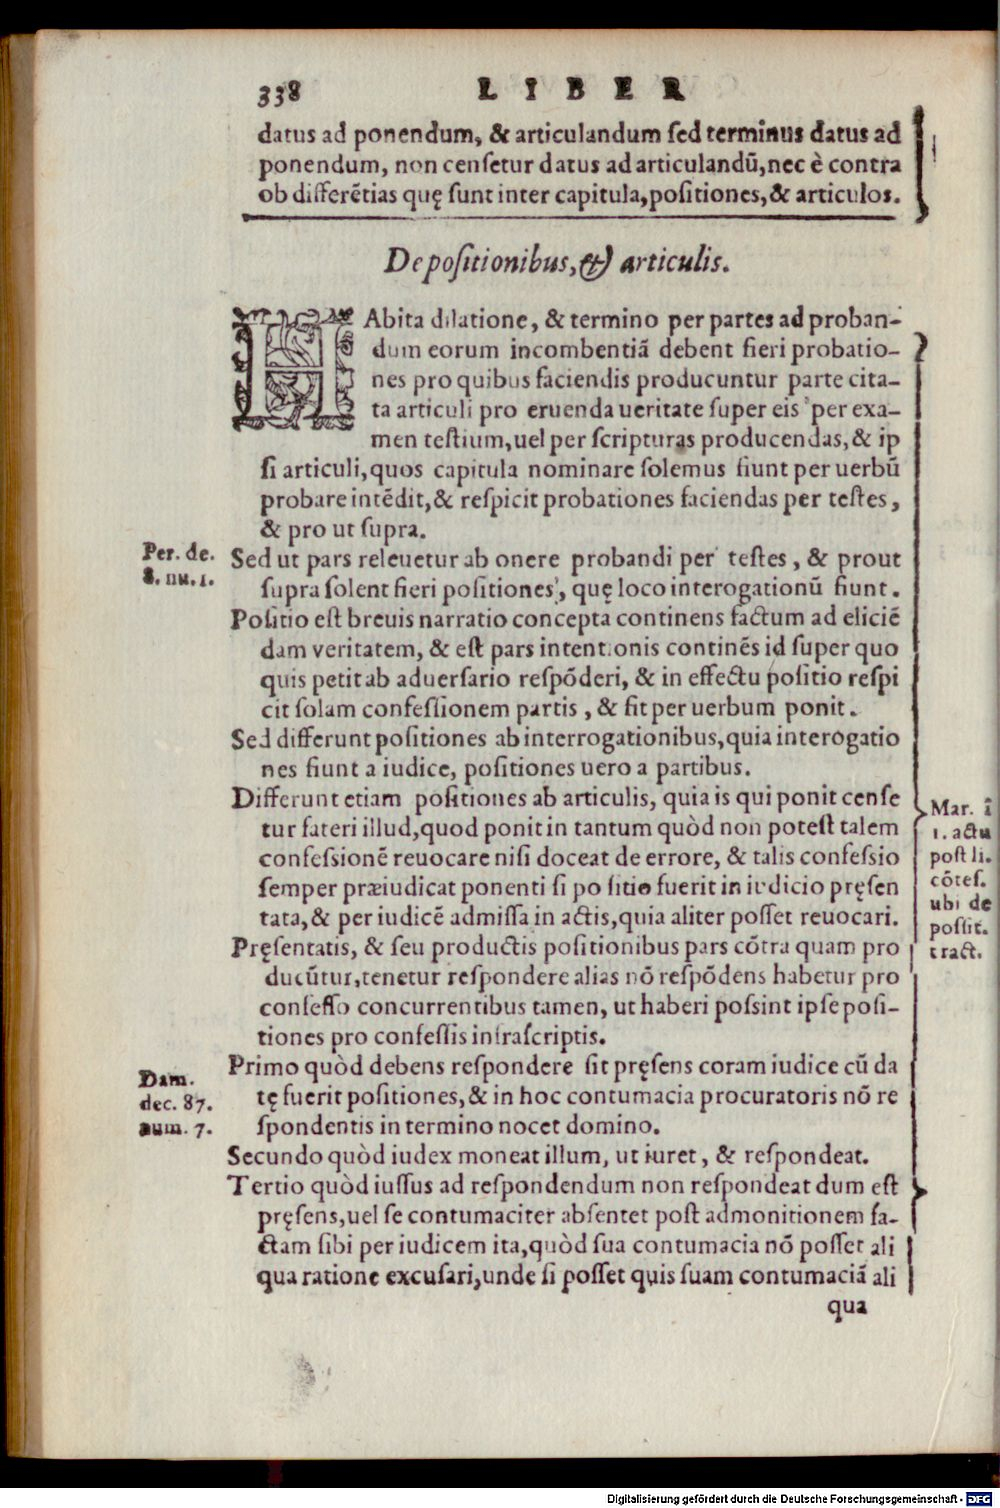 338 LIBER
datus ad ponendum, & articulandum sed terminus datus ad
ponendum, non censetur datus ad articulandū, nec è contra
ob differẽtias quę sunt inter capitula, positiones, & articulos.
De positionibus, & articulis.
HAbita dilatione, & termino per partes ad proban-
dum eorum incombentiã debent fieri probatio-
nes pro quibus faciendis producuntur parte cita-
ta articuli pro eruenda ueritate super eis per exa-
men testium, uel per scripturas producendas, & ip
si articuli, quos capitula nominare solemus fiunt per uerbū
probare intẽdit, & respicit probationes faciendas per testes,
& pro ut supra.
Per. de.
8. nu. 1.
Sed ut pars releuetur ab onere probandi per testes, & prout
supra solent fieri positiones, quę loco interogationū fiunt.
Positio est breuis narratio concepta continens factum ad eliciẽ
dam veritatem, & est pars intentionis continẽs id super quo
quis petit ab aduersario respõderi, & in effectu positio respi
cit solam confessionem partis, & fit per uerbum ponit.
Sed differunt positiones ab interrogationibus, quia interogatio
nes fiunt a iudice, positiones uero a partibus.
Differunt etiam positiones ab articulis, quia is qui ponit cense
tur fateri illud, quod ponit in tantum quòd non potest talem
confessionẽ reuocare nisi doceat de errore, & talis confessio
semper præiudicat ponenti si positio fuerit in iudicio pręsen
tata, & per iudicẽ admissa in actis, quia aliter posset reuocari.
Mar. ĩ
1. actu
post li.
cõtes.
ubi de
possit.
tract.
Pręsentatis, & seu productis positionibus pars cõtra quam pro
ducūtur, tenetur respondere alias nõ respõdens habetur pro
confesso concurrentibus tamen, ut haberi possint ipse posi-
tiones pro confessis infrascriptis.
Primo quòd debens respondere sit pręsens coram iudice cū da
tę fuerit positiones, & in hoc contumacia procuratoris nõ re
spondentis in termino nocet domino.
Dam.
dec. 87.
num. 7.
Secundo quòd iudex moneat illum, ut iuret, & respondeat.
Tertio quòd iussus ad respondendum non respondeat dum est
pręsens, uel se contumaciter absentet post admonitionem fa-
ctam sibi per iudicem ita, quòd sua contumacia nõ posset ali
qua ratione excusari, unde si posset quis suam contumaciã ali
qua
Digitalisierung gefördert durch die Deutsche Forschungsgemeinschaft - DFG